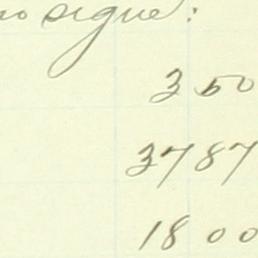 no sigue:
350
3787
1800